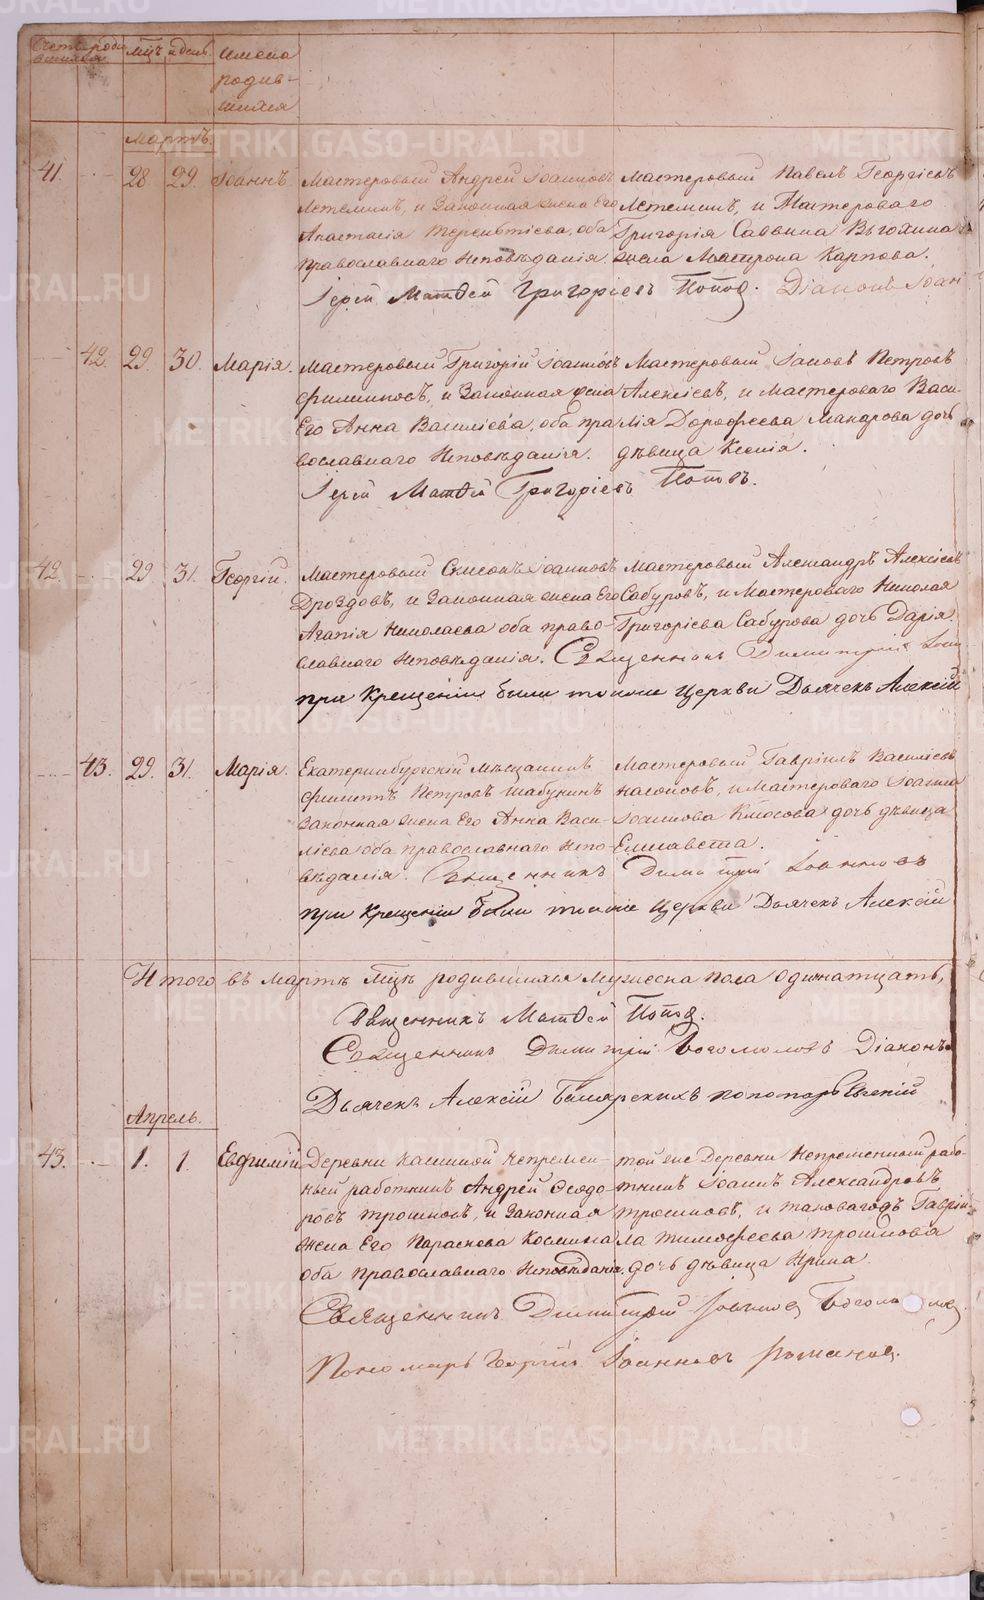 Счетъ роди
вшихся
Мцъ и день
имена
родив-
шихся
Мартъ.
41. 28 29. Іоаннъ.
Мастеровый Андрей Іоанновъ
и законная жена Его
Анастасія Терентіева, оба
православнаго исповѣданія.
Мастеровый Павелъ Георгіевъ
и Мастероваго
Григорія Саввина
жена Матрона Карпова.
Іерей Матѳей Григоріевъ Поповъ. Діаконъ Іоан
42. 29. 30. Марія.
Мастеровый Григорій Іоанновъ
Филиповъ, и законная жена
Его Анна Василіева, оба пра
вославнаго исповѣданія.
Мастеровый Іаковъ Петровъ
Алексѣевъ, и Мастероваго Васи-
лія Дорофеева Макарова дочь
дѣвица Ксенія.
Іерей Матѳей Григоріевъ Поповъ.
42. 29 31. Георгій.
Мастеровый Симеонъ Іоанновъ
Дроздовъ, и законная жена Его
Агапія Николаева оба право-
славнаго исповѣданія.
Мастеровый Александръ Алексѣевъ
Сабуровъ, и Мастероваго Николая
Григоріева Сабурова дочь Дарія.
Священникъ Димитрій
при крещеніи были тоя же Церкви Дьячекъ Алексій
43. 29. 31. Марія.
Екатеринбургскій мѣщанинъ
Филиппъ Петровъ Шабунинъ
законная жена Его Анна Васи-
лієва оба православнаго испо-
вѣданія.
Мастеровый Гавріилъ Василіевъ
и Мастероваго Іоанна
Іоаннова дочь дѣвица
Елисавета.
Священникъ Димитрій Іоанновъ
при крещеніи были тоя же Церкви Дьячекъ Алексій
Итого въ Мартѣ Мцѣ родившихся мужеска пола одинатцать,
Священникъ Матѳей Поповъ.
Священникъ Димитрій Богомоловъ Діаконъ
Дьячекъ Алексій пономарь Евгеній
Апрель.
43. 1. 1. Евфимій
Деревни непремен-
ный работникъ Андрей Ѳеодо-
ровъ Трошковъ, и законная
жена Его Параскева Космина
оба православнаго исповѣданія.
той же Деревни непременный рабо-
тникъ Іоаннъ Александровъ
Трошковъ, и таковагожъ Гаврій-
ла Тимофеева Трошкова
дочь дѣвица Ирина.
Священникъ Димитрій Іоанновъ
Пономарь Георгій Іоанновъ Романовъ.
METRIKI.GASO-URAL.RU